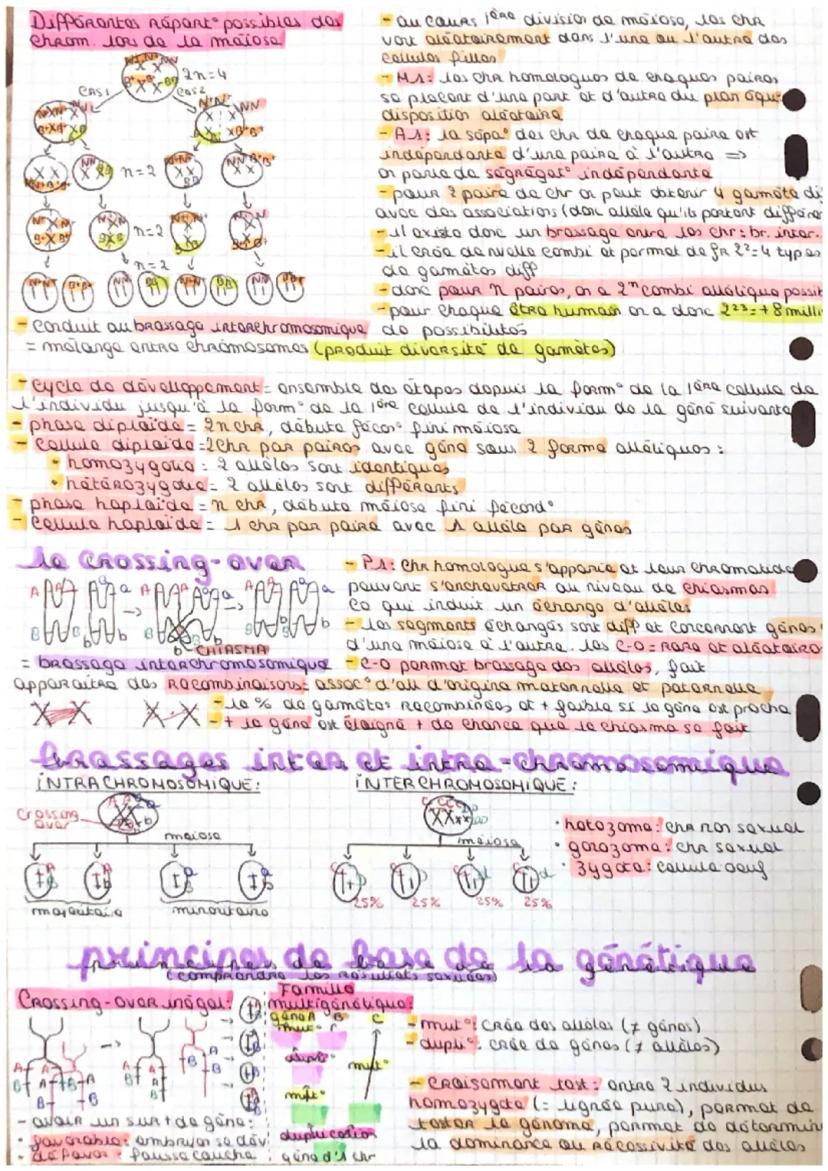 Différentes répart° possibles des
chrom. lors de la méiose
2n=4
CAS1
CAS2
n=2
n=2
n=2
- conduit au brassage interchromosomique
= mélange entre chromosomes (produit diversité de gamètes)
- au cours 1ère division de méiose, les chr
vont aléatoirement dans l'une ou l'autre des
cellules filles
- M1: les chr homologues de chaques paires
se placent d'une part et d'autre du plan équa
disposition aléatoire
- A1: la sépa° des chr de chaque paire est
indépendante d'une paire à l'autre =>
on parle de ségrégat° indépendante
- pour 2 paire de chr on peut obtenir 4 gamète di
avec des associations (donc allèle qu'ils portent différen
- il existe donc un brassage entre les chr: br. inter.
- il crée de nvelle combi et permet de fr 2²=4 types
de gamètes diff
- donc pour n paires, on a 2ⁿ combi allélique possib
- pour chaque être humain on a donc 2²³=+8 milli
de possibilités
- cycle de développement = ensemble des étapes depuis la form° de la 1ère cellule de
l'individu jusqu'à la form° de la 1ère cellule de l'individu de la géné suivante
- phase diploïde = 2n chr, débute fécon° fini méiose
- cellule diploïde = 2chr par paires avec gène sous 2 forme alléliques :
• homozygote = 2 allèles sont identiques
• hétérozygote = 2 allèles sont différents
- phase haploïde = n chr, débute méiose fini fécond°
- cellule haploïde = 1 chr par paire avec 1 allèle par gènes
le crossing-over
CHIASMA
= brassage intrachromosomique
- P1: chr homologue s'apparie et leur chromatide
peuvent s'enchevêtrer au niveau de chiasmas
ce qui induit un échange d'allèles
- les segments échangés sont diff et concernent gènes
d'une méiose à l'autre. les C-O = rare et aléatoire
- C-O permet brassage des allèles, fait
apparaitre des recombinaisons: assoc° d'all d'origine maternelle et paternelle
- le % de gamètes recombinées et + faible si le gène est proche
- + le gène est éloigné + de chance que le chiasma se fait
brassages inter et intra-chromosomique
INTRACHROMOSOMIQUE:
Crossing
over
méiose
majoritaire
minoritaire
INTERCHROMOSOMIQUE:
méiose
25% 25% 25% 25%
• hétozome: chr non sexuel
• gonozome: chr sexuel
• zygote: cellule oeuf
principes de base de la génétique
(comprendre les résultats sexuées)
Crossing-over inégal:
- avoir un sur+ de gène:
• favorable: embryon se dév
• défavor: fausse couche
Famille
multigénétique:
gène A B C
mut°
dupli°
mut°
mut°
duplication
gène d'1 chr
- mut°: crée des allèles (≠ gènes)
- dupli°: crée de gènes (≠ allèles)
- Croisement test: entre 2 individus
homozygote (= lignée pure), permet de
tester le génome, permet de détermin
la dominance ou récessivité des allèles